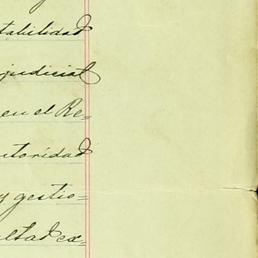 tabilidad
judicial
en el Re-
utoridad
y gestio-
ultad ex-